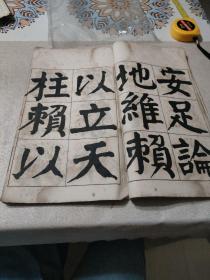 安足論
地維賴
以立天
柱賴以